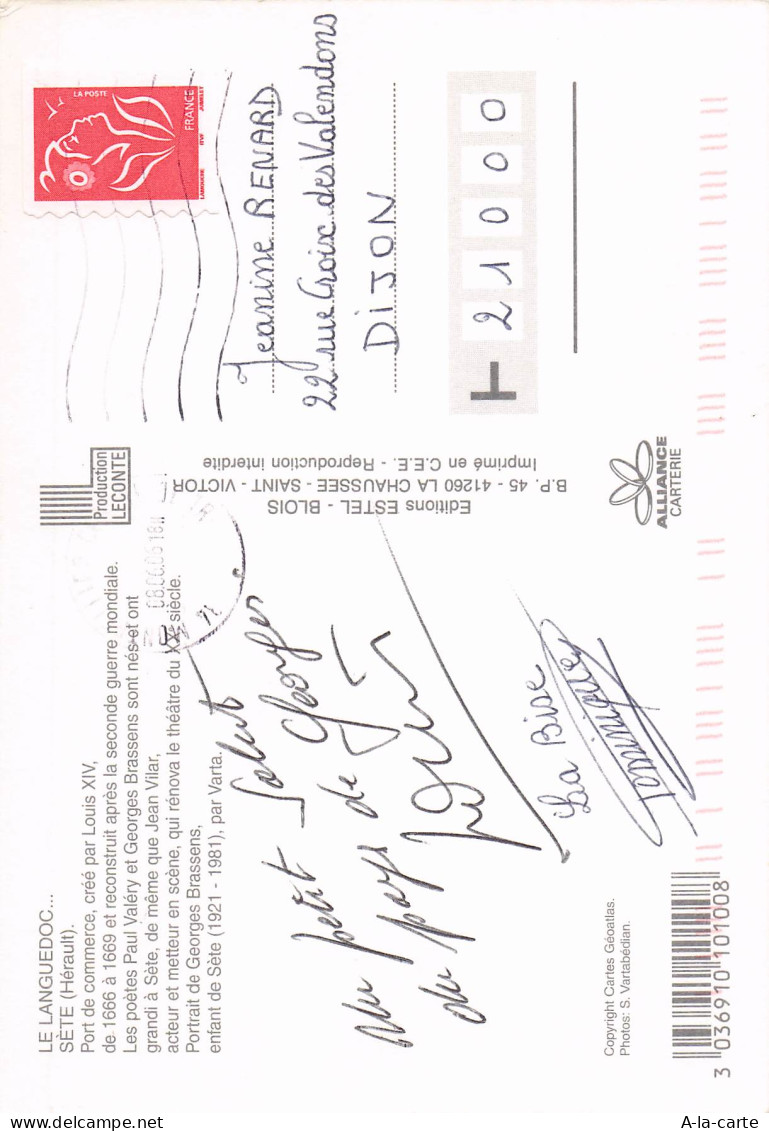 LE LANGUEDOC...
SÈTE (Hérault).
Port de commerce, créé par Louis XIV,
de 1666 à 1669 et reconstruit après la seconde guerre mondiale.
Les poètes Paul Valéry et Georges Brassens sont nés et ont
grandi à Sète, de même que Jean Vilar,
acteur et metteur en scène, qui rénova le théâtre du XXe siècle.
Portrait de Georges Brassens,
enfant de Sète (1921 - 1981), par Varta.
Un petit Salut
du pays de Georges
La Bise
Dominique
Copyright Cartes Géoatlas.
Photos: S. Vartabédian.
3 036910 101008
Production
LECONTE
08.06.06 18H
Editions ESTEL - BLOIS
B.P. 45 - 41260 LA CHAUSSEE - SAINT - VICTOR
Imprimé en C.E.E. - Reproduction interdite
ALLIANCE
CARTERIE
LA POSTE
FRANCE
LAMOUCHE ITVF JUMELET
Jeanine RENARD
22 rue Croix des Valendons
DIJON
21000
A-la-carte